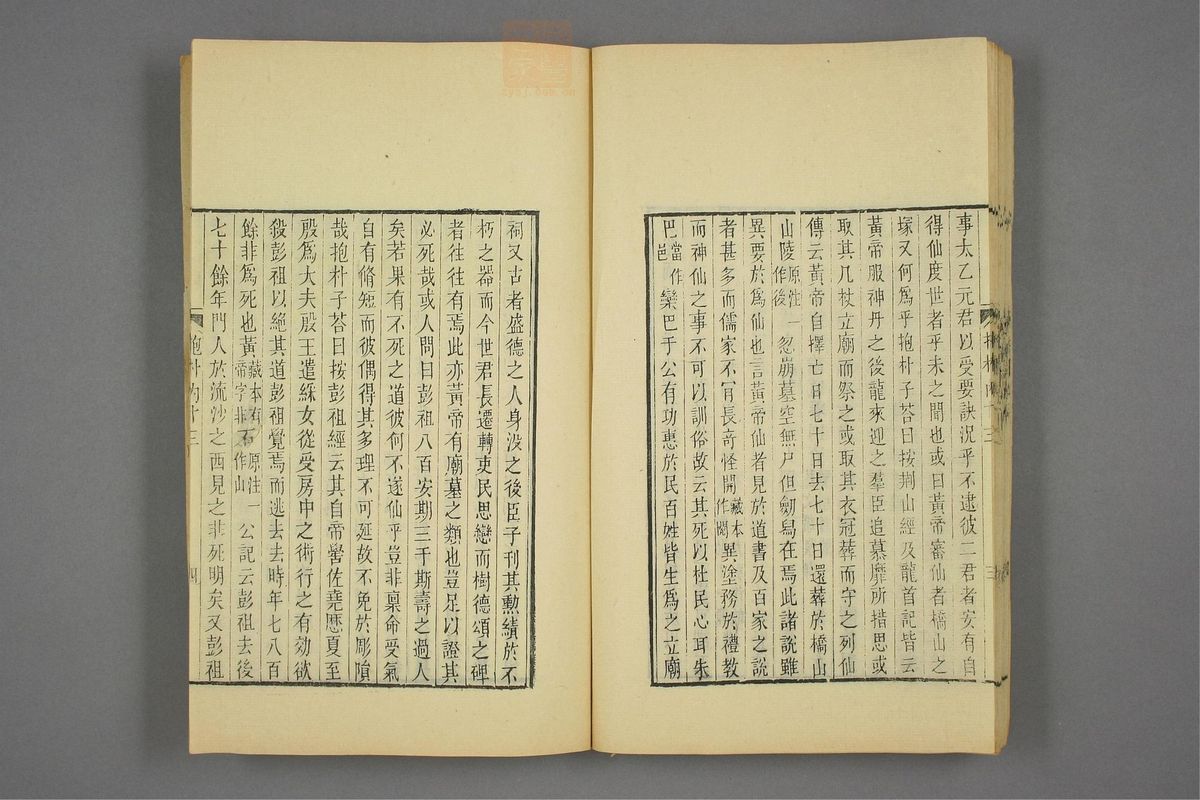 事太乙元君以受要訣況乎不逮彼二君者安有自
得仙度世者乎未之聞也或曰黃帝審仙者橋山之
塚又何為乎抱朴子荅曰按荆山經及龍首記皆云
黃帝服神丹之後龍來迎之羣臣追慕靡所措思或
取其几杖立廟而祭之或取其衣冠葬而守之列仙
傳云黃帝自擇亡日七十日去七十日還葬於橋山
山陵原注一作後忽崩墓空無尸但劒舄在焉此諸說雖
異要於為仙也言黃帝仙者見於道書及百家之說
者甚多而儒家不肎長竒怪開藏本作閡異塗務於禮教
而神仙之事不可以訓俗故云其死以杜民心耳朱
巴當作邑欒巴于公有功惠於民百姓皆生為之立廟
祠又古者盛德之人身沒之後臣子刊其勲績於不
朽之器而今世君長遷轉吏民思戀而樹德頌之碑
者往往有焉此亦黃帝有廟墓之類也豈足以證其
必死哉或人問曰彭祖八百安期三千斯壽之過人
矣若果有不死之道彼何不遂仙乎豈非稟命受氣
自有脩短而彼偶得其多理不可延故不免於彫隕
哉抱朴子荅曰按彭祖經云其自帝嚳佐堯歷夏至
殷為大夫殷王遣綵女從受房中之術行之有効欲
殺彭祖以絕其道彭祖覺焉而逃去去時年七八百
餘非為死也黃藏本有帝字非石原注一作山公記云彭祖去後
七十餘年門人於流沙之西見之非死明矣又彭祖
抱朴內十三
四